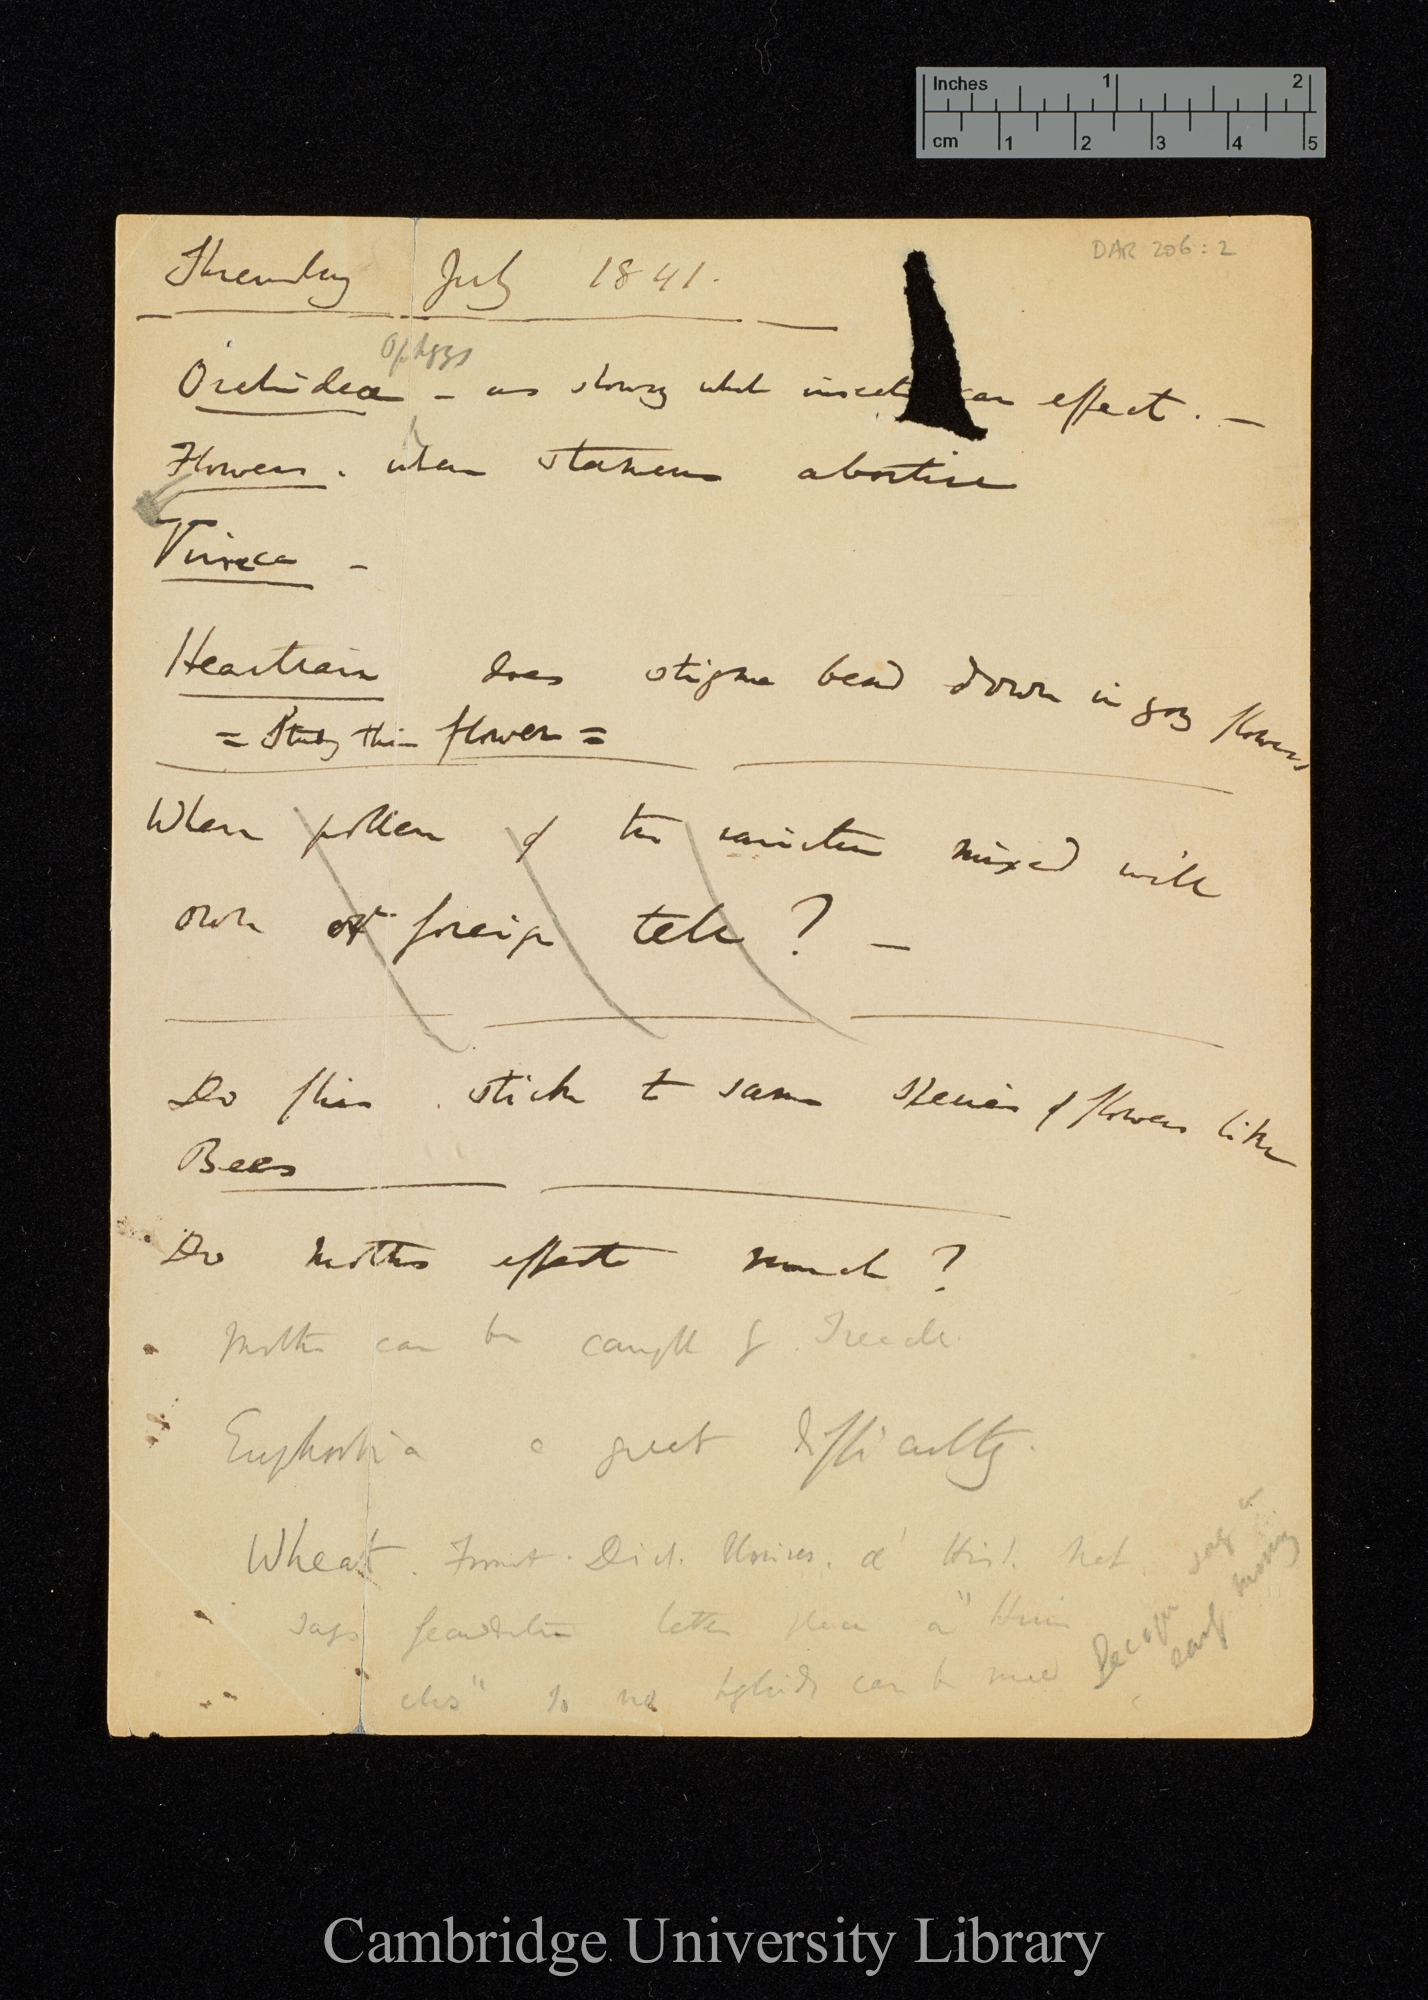 Inches 1 2
cm 1 2 3 4 5
DAR 206:2
Shrewsbury July 1841.
Ophrys
Orchideæ – as showing what insects can effect. –
Flowers. when stamens abortive
Vinca –
Heartsease does stigma bend down in gay flowers
= Study this flower =
When pollen of two varieties mixed will
own or foreign tell? –
Do flies stick to same species of flowers like
Bees
Do moths effect much?
Moths can be caught by Treacle.
Euphorbia a great difficulty.
Wheat. Froment. Dict. Univers. d' Hist. Nat.
says fecundation takes place a" huis
clos" so no hybrids can be made
early morning
Cambridge University Library